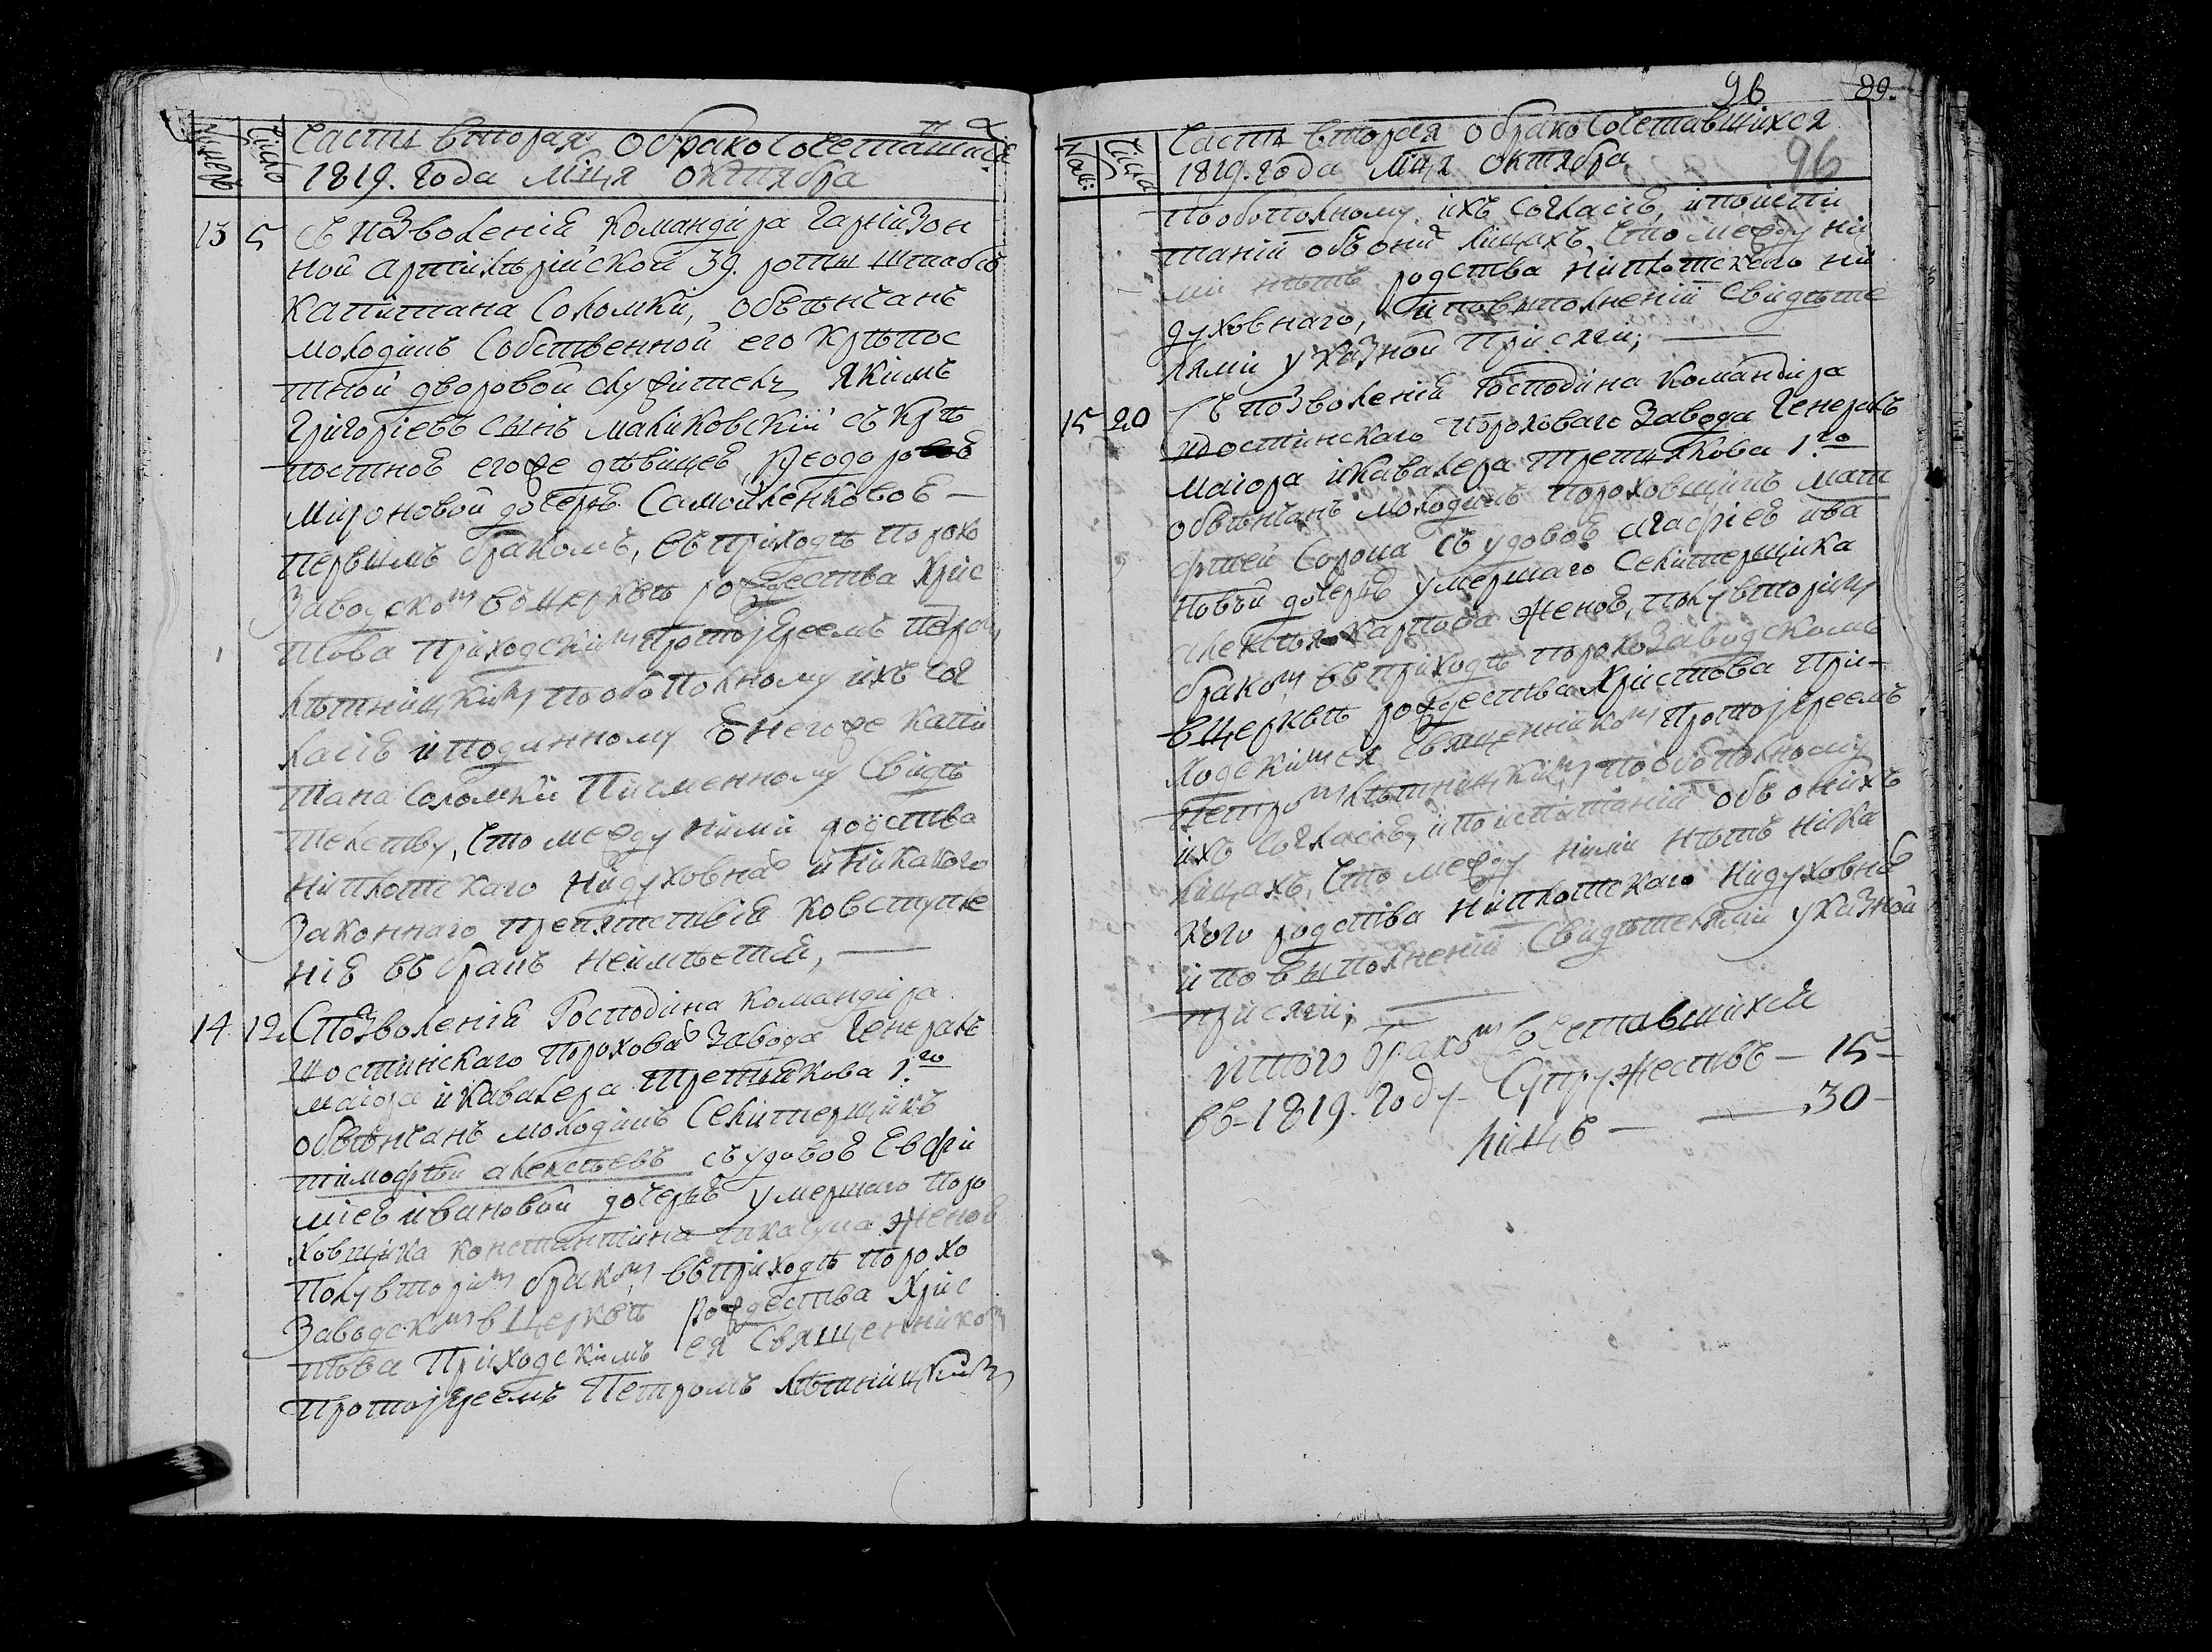 Часть вторая о бракосочеташихся
1819. года мѣца октября
13 5 Съ позволенія командира гарнизон
ной артилѣрійской 39. роты штабсъ
капитана Соломки, обвѣнчанъ
молодикъ собственной его крѣпос
тной дворовой служитель Якимъ
Григоріевъ сынъ Маликовскій съ крѣ
постною его же дѣвицею Ѳеодорою
Мироновой дочерю Самойленковою —
первымъ бракомъ, въ приходѣ порохо
заводскомъ въ церквѣ рождества Хрис
това приходскимъ протоіереемъ Петромъ
Лѣтницкимъ по обополному ихъ сог
ласію и по данному отъ него же капи
тана Соломки писменному свидѣ
телству, что между ними родства
ни плотскаго ни духовнаго и никакого
законнаго препятствія ко вступле
нію въ бракъ неимѣется, —
14. 12. С позволенія Господина командира
Шостинскаго Пороховаго завода Генералъ
маіора и кавалера Третьякова 1.го
обвѣнчанъ молодикъ Селитерщикъ
Тимофѣй Алексѣевъ съ удовою Евфи
міею Ивановой дочерью умершаго поро
ховщика Константина женою
полувторимъ бракомъ, въ приходѣ порохо
заводскомъ в церквѣ рождества Хрис
това приходскимъ ея священникомъ
протоіереемъ Петромъ Лѣтницкимъ
96 89.
Часть вторая о бракосочетавшихся
1819. года мѣця октября
96
по обополному ихъ согласію, и по испи
таній объ оних лицахъ, что между ни
ми нѣтъ родства ни плотскаго ни
духовнаго, и по выполненій свидѣте
лями указной присяги; —
15 20 Съ позволенія Господина командира
Шостинскаго Пороховаго завода Генералъ
маіора и кавалера Третьякова 1.го
обвѣнчанъ молодикъ пороховщикъ Мат
фѣей Сорока съ удовою Агафіею Ива
новой дочерью умершаго Селитерщика
Алексѣя Карпова женою, полувторимъ
бракомъ въ приходѣ порохозаводскомъ
в церквѣ рождества Христова При-
ходскимъ ея священникомъ протоіереемъ
Петромъ Лѣтницкимъ по обополному
ихъ согласію, и по испитаній объ онихъ
лицахъ, что между ними нѣтъ ника
кого родства ни плотскаго ни духовнаго
и по выполненій свидѣтелями указной
присяги; —
Итого бракомъ сочетавшихся
въ 1819. году. Супружествъ — 15 -
лицъ — 30 -